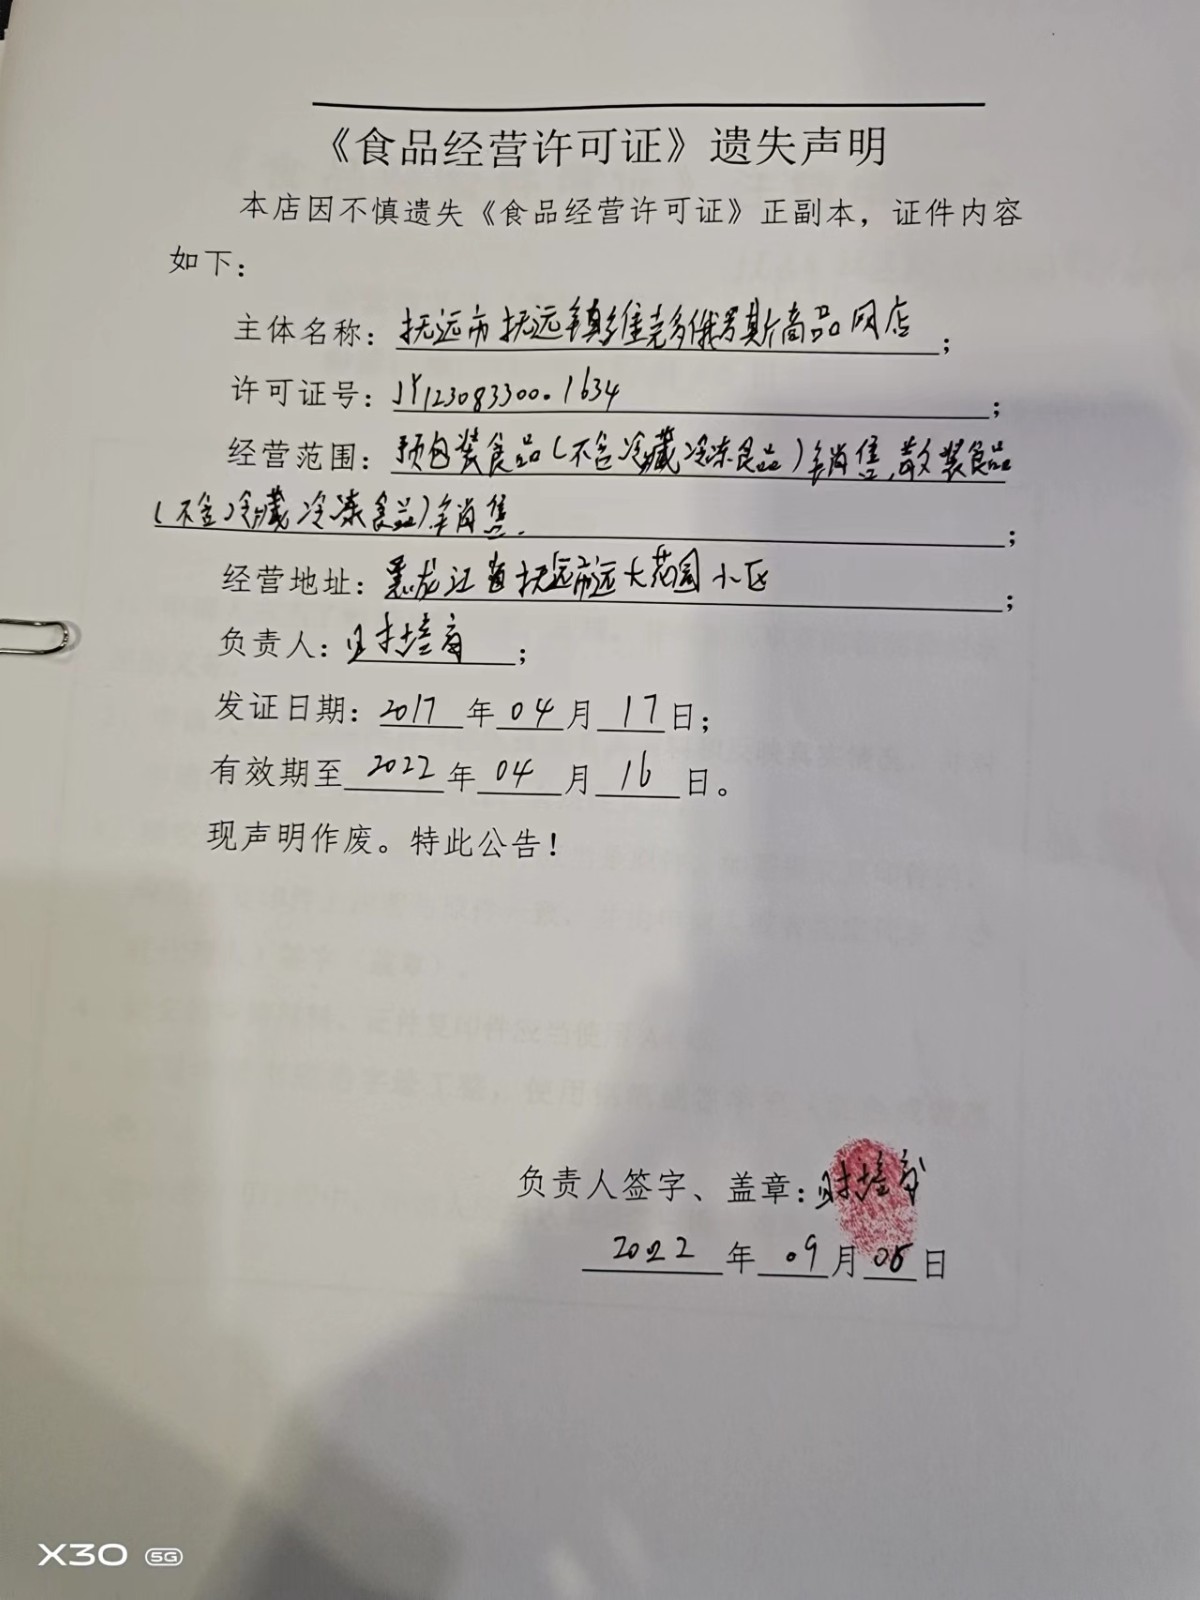 《食品经营许可证》遗失声明
本店因不慎遗失《食品经营许可证》正副本，证件内容
如下：
主体名称：抚远市抚远镇维克多俄罗斯商品网店；
许可证号：JY12308330001634；
经营范围：预包装食品(不含冷藏冷冻食品)销售,散装食品
(不含冷藏冷冻食品)销售.；
经营地址：黑龙江省抚远市远大花园小区；
负责人：财培育；
发证日期：2017年04月17日；
有效期至2022年04月16日。
现声明作废。特此公告！
负责人签字、盖章：财培育
2022年09月05日
X30 5G